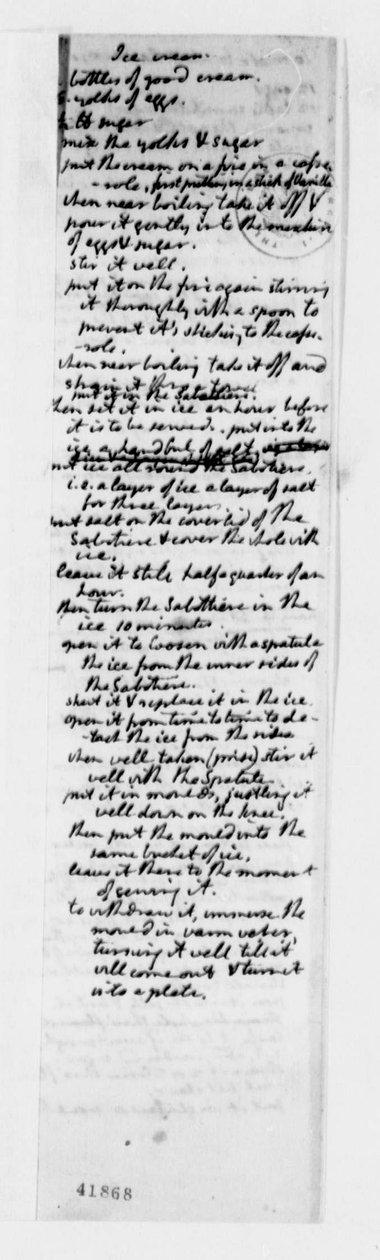 Ice cream.
bottles of good cream.
yolks of eggs.
lb sugar
mix the yolks & sugar
put the cream on a fire in a casse
-role, first putting in a stick of Vanilla.
when near boiling take it off &
pour it gently into the mixture
of eggs & sugar.
stir it well.
put it on the fire again stirring
it thoroughly with a spoon to
prevent it's sticking to the casse-
-role.
when near boiling take it off and
strain it thro' a towel
put it in the Sabottiere.
then set it in ice an hour before
it is to be served. put into the
ice a handful of salt
put ice all round the Sabotiere.
i.e. a layer of ice a layer of salt
for three layers.
put salt on the coverlid of the
Sabotiere & cover the whole with
ice.
leave it still half a quarter of an
hour.
then turn the Sabottiere in the
ice 10 minutes.
open it to loosen with a spatula
the ice from the inner sides of
the Sabotiere.
shut it & replace it in the ice
open it from time to time to de-
-tach the ice from the sides
when well taken (prise) stir it
well with the Spatula.
put it in moulds, justling it
well down on the knee.
then put the mould into the
same bucket of ice.
leave it there to the moment
of serving it.
to withdraw it, immerse the
mould in warm water,
turning it well till it
will come out & turn it
into a plate.
41868